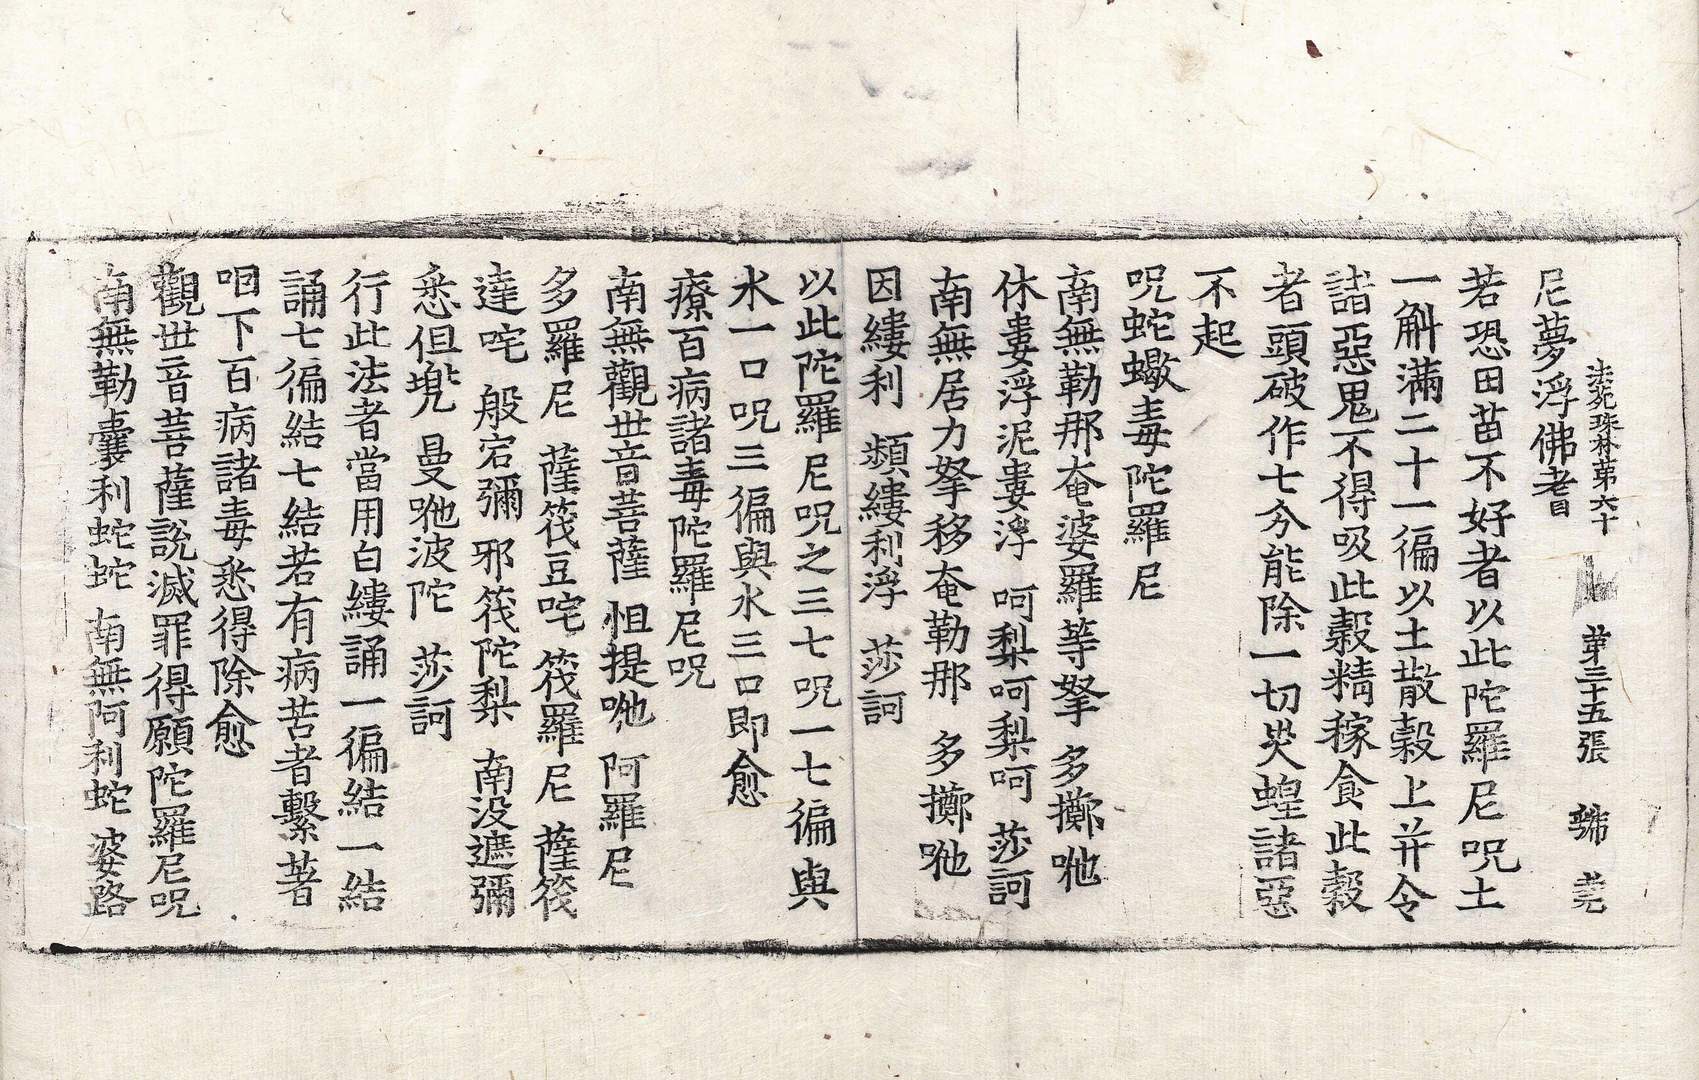 法苑珠林第六十 第三十五張 號 羌
尼夢浮佛耆
若恐田苗不好者以此陀羅尼呪土
一斛滿二十一徧以土散穀上并令
諸惡鬼不得吸此穀精稼食此穀
者頭破作七分能除一切災蝗諸惡
不起
呪蛇蠍毒陀羅尼
南無勒那奄婆羅等拏 多擲吔
休婁浮泥婁浮 呵梨呵梨呵 莎訶
南無居力拏移奄勒那 多擲吔
因縷利 頞縷利浮 莎訶
以此陀羅尼呪之三七呪一七徧與
水一口呪三徧與水三口即愈
療百病諸毒陀羅尼呪
南無觀世音菩薩 怛提吔 阿羅尼
多羅尼 薩筏豆咤 筏羅尼 薩筏
達咤 般宕彌 邪筏陀梨 南没遮彌
悉但兜 曼吔波陀 莎訶
行此法者當用白縷誦一徧結一結
誦七徧結七結若有病苦者繫著
咽下百病諸毒悉得除愈
觀世音菩薩說滅罪得願陀羅尼呪
南無勒囊利蛇蛇 南無阿利蛇 婆路